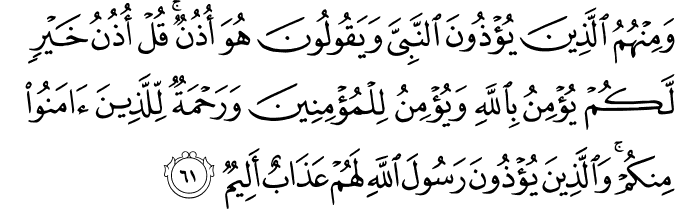 وَمِنْهُمُ ٱلَّذِينَ يُؤْذُونَ ٱلنَّبِىَّ وَيَقُولُونَ هُوَ أُذُنٌ ۚ قُلْ أُذُنُ خَيْرٍ
لَّكُمْ يُؤْمِنُ بِٱللَّهِ وَيُؤْمِنُ لِلْمُؤْمِنِينَ وَرَحْمَةٌ لِّلَّذِينَ ءَامَنُوا۟
مِنكُمْ ۚ وَٱلَّذِينَ يُؤْذُونَ رَسُولَ ٱللَّهِ لَهُمْ عَذَابٌ أَلِيمٌ ٦١